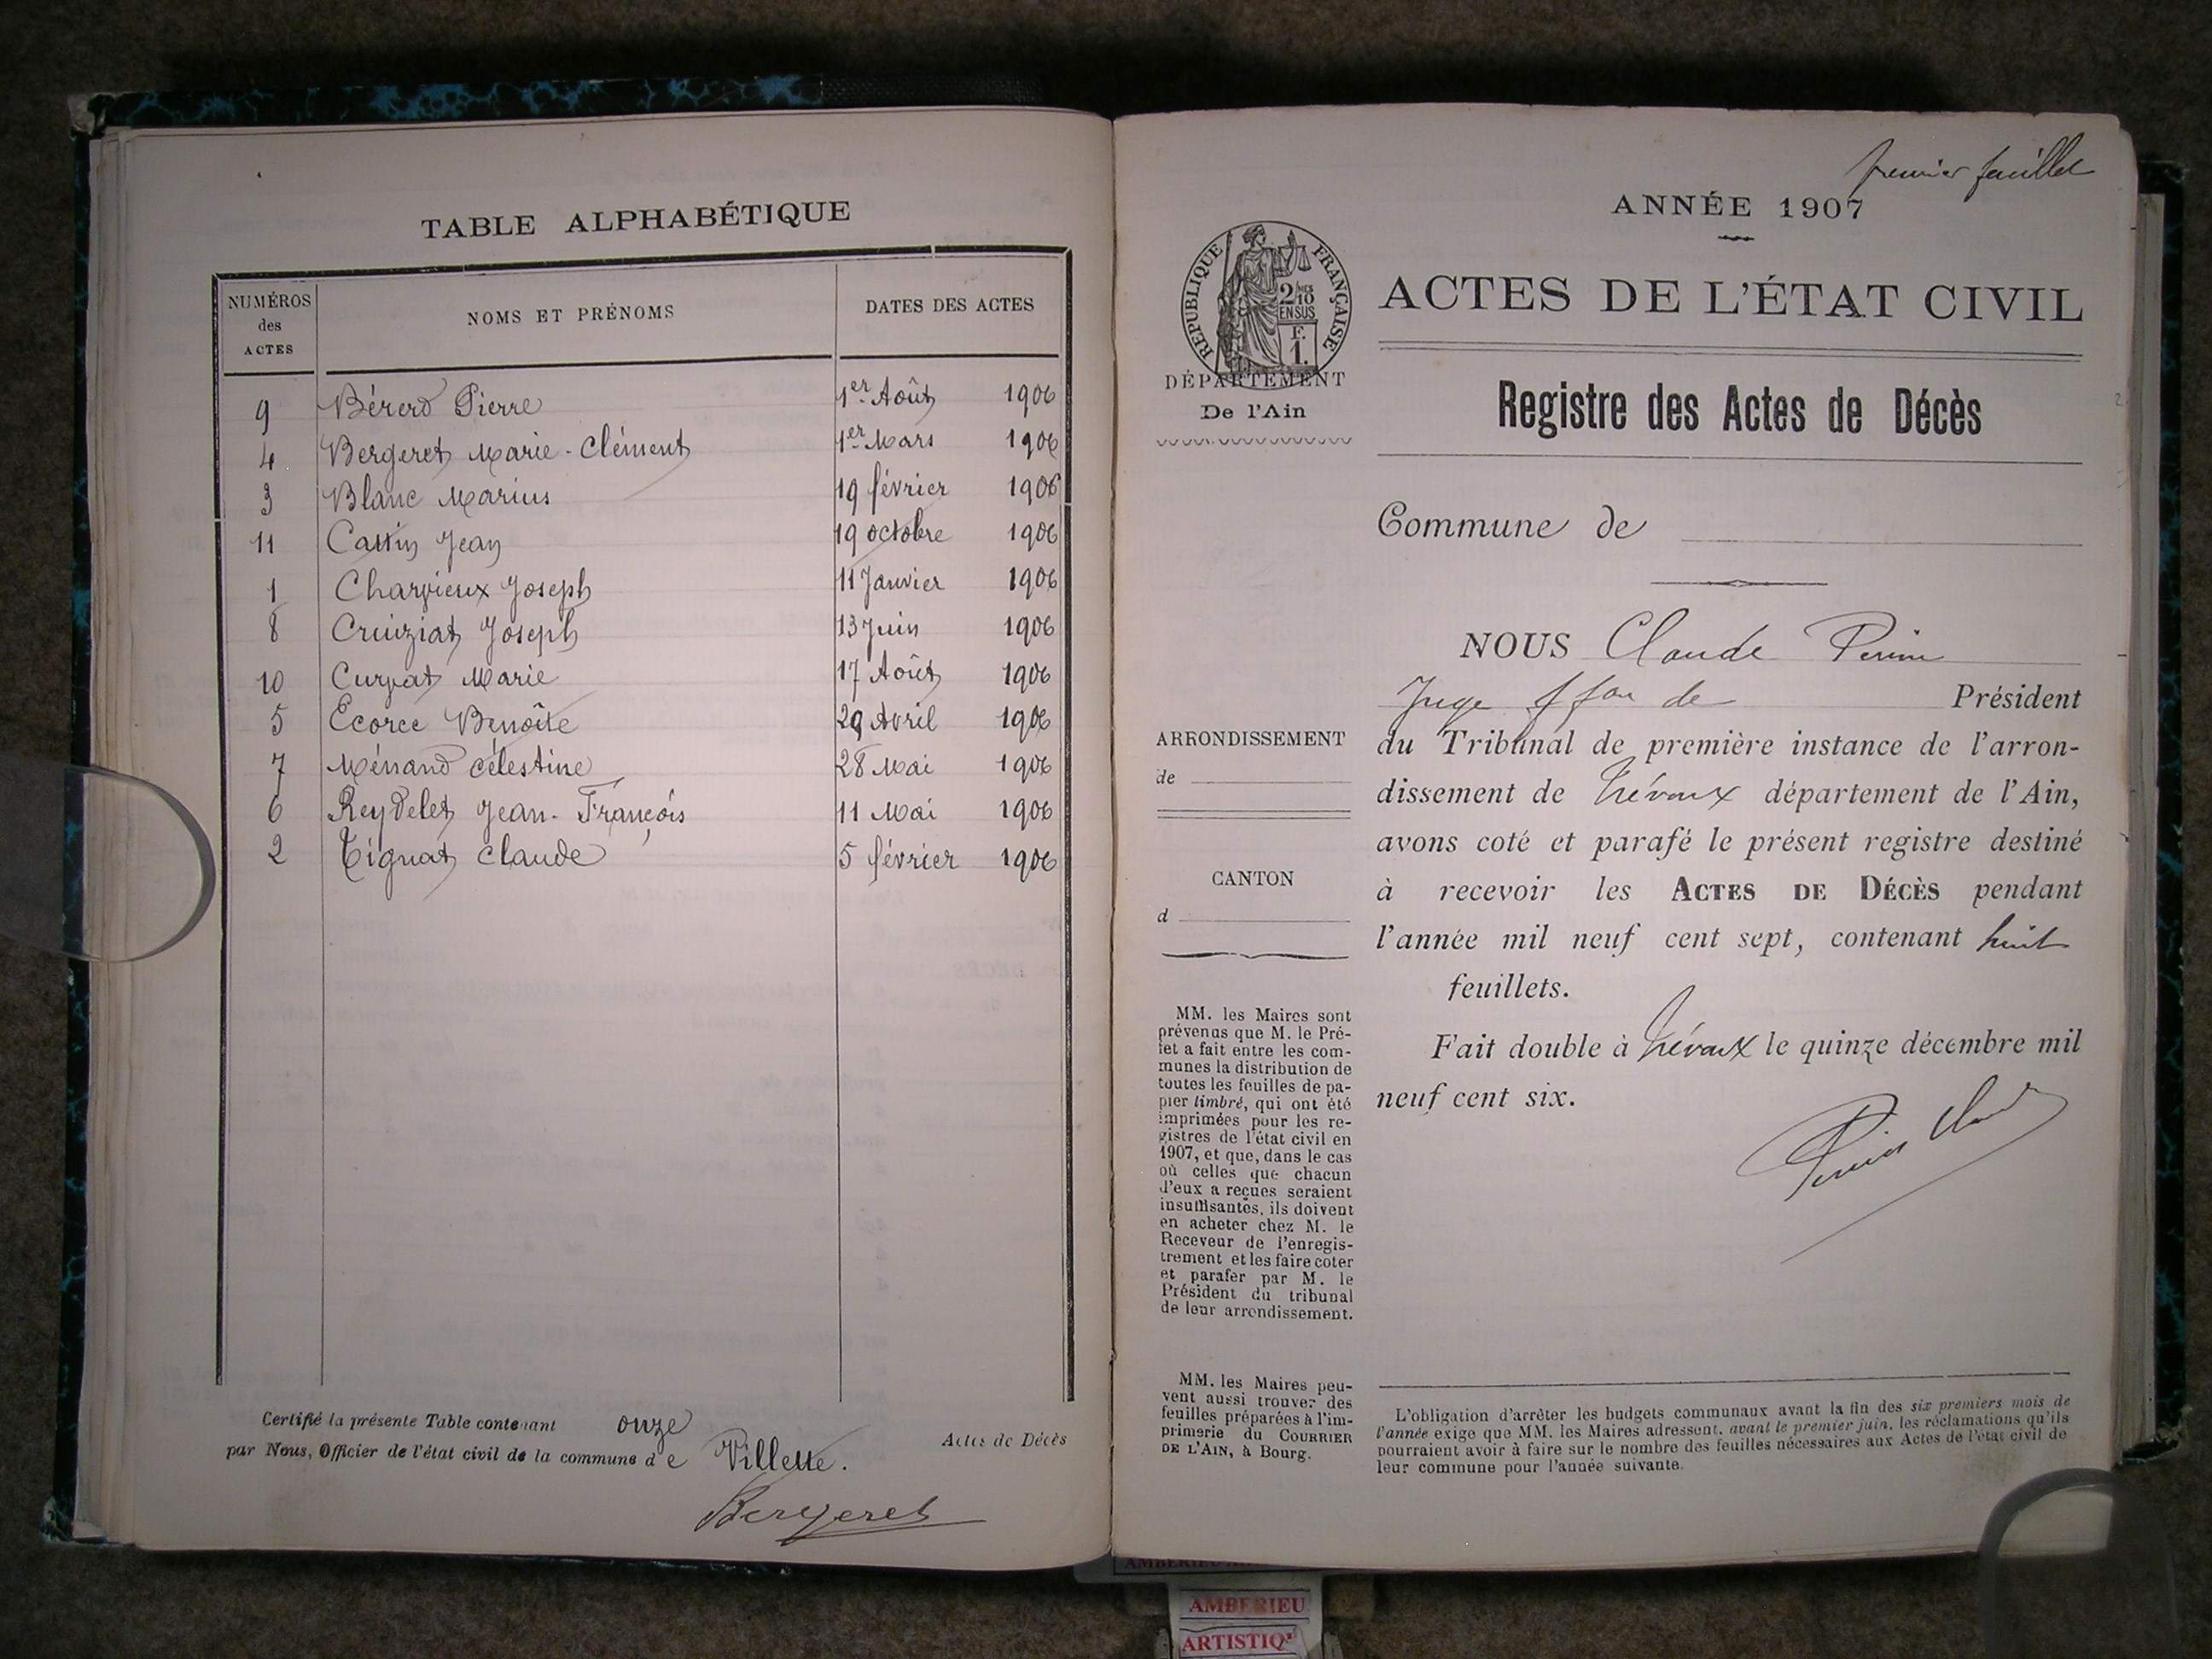 TABLE ALPHABÉTIQUE
NUMÉROS des ACTES NOMS ET PRÉNOMS DATES DES ACTES
9 Bérerd Pierre 1er Août 1906
4 Bergeret Marie-Clément 1er Mars 1906
3 Blanc Marius 19 février 1906
11 Cattin Jean 19 octobre 1906
1 Charvieux Joseph 11 Janvier 1906
8 Cruiziat Joseph 13 Juin 1906
10 Curvat Marie 17 Août 1906
5 Ecorce Benoîte 29 Avril 1906
7 Ménand Célestine 28 Mai 1906
6 Reydelet Jean-François 11 Mai 1906
2 Tignat Claude 5 février 1906
Certifié la présente Table contenant onze Actes de Décès
par Nous, Officier de l'état civil de la commune de Villette.
Bergeret
premier feuillet
ANNÉE 1907
RÉPUBLIQUE FRANÇAISE
2/10
EN SUS
F.
1.
ACTES DE L'ÉTAT CIVIL
DÉPARTEMENT
De l'Ain
Registre des Actes de Décès
Commune de
NOUS Claude Perrin
Juge ffon de Président
du Tribunal de première instance de l'arron-
dissement de Trévoux département de l'Ain,
avons coté et parafé le présent registre destiné
à recevoir les ACTES DE DÉCÈS pendant
l'année mil neuf cent sept, contenant huit
feuillets.
Fait double à Trévoux le quinze décembre mil
neuf cent six.
Perrin Claude
ARRONDISSEMENT
de
CANTON
d
MM. les Maires sont
prévenus que M. le Pré-
fet a fait entre les com-
munes la distribution de
toutes les feuilles de pa-
pier timbré, qui ont été
imprimées pour les re-
gistres de l'état civil en
1907, et que, dans le cas
où celles que chacun
d'eux a reçues seraient
insuffisantes, ils doivent
en acheter chez M. le
Receveur de l'enregis-
trement et les faire coter
et parafer par M. le
Président du tribunal
de leur arrondissement.
MM. les Maires peu-
vent aussi trouver des
feuilles préparées à l'im-
primerie du COURRIER
DE L'AIN, à Bourg.
L'obligation d'arrêter les budgets communaux avant la fin des six premiers mois de
l'année exige que MM. les Maires adressent, avant le premier juin, les réclamations qu'ils
pourraient avoir à faire sur le nombre des feuilles nécessaires aux Actes de l'état civil de
leur commune pour l'année suivante.
AMBERIEU
AMBERIEU
ARTISTIQ